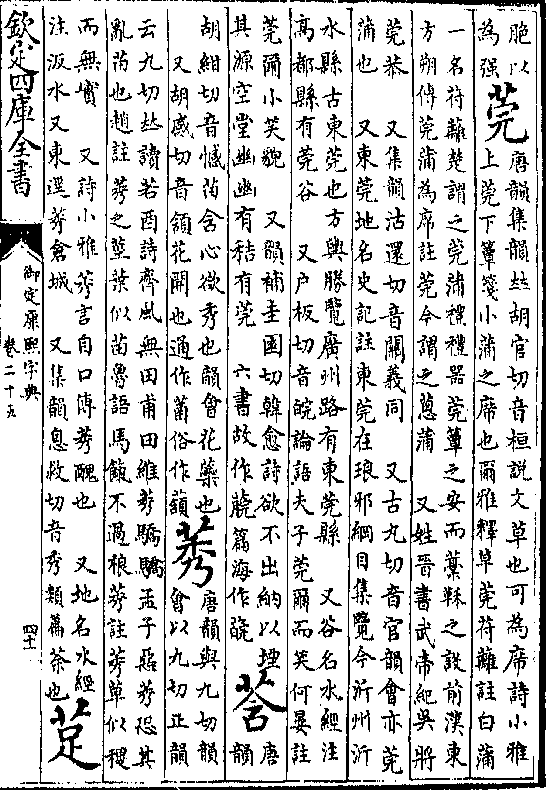 脃以
為强
莞
唐韻集韻𠀤胡官切音桓說文草也可為席詩小雅
上莞下簟箋小蒲之席也爾雅釋草莞苻蘺註白蒲
一名苻蘺楚謂之莞蒲禮禮器莞簟之安而藁鞂之設前漢東
方朔傳莞蒲為席註莞今謂之蔥蒲 又姓晉書武帝紀吳將
莞恭 又集韻沽還切音關義同 又古丸切音官韻會亦莞
蒲也 又東莞地名史記註東莞在琅邪綱目集覽今沂州沂
水縣古東莞也方輿勝覽廣州路有東莞縣 又谷名水經注
高都縣有莞谷 又戶板切音睆論語夫子莞爾而笑何晏註
莞爾小笑貌 又韻補圭圓切韓愈詩欲不出納以堙
其源空堂幽幽有秸有莞 六書故作 篇海作
莟
唐
韻
胡紺切音憾莟含心欲秀也韻會花蘂也
又胡感切音頷花開也通作菡俗作
莠
唐韻與九切韻
會以九切正韻
云九切𠀤讀若酉詩齊風無田甫田維莠驕驕孟子惡莠恐其
亂苗也趙註莠之莖葉似苗魯語馬餼不過稂莠註莠草似稷
而無實 又詩小雅莠言自口傳莠醜也 又地名水經
注汳水又東逕莠倉城 又集韻息救切音秀類篇茶也
莡
欽定四庫全書
御定康熙字典
卷二十五